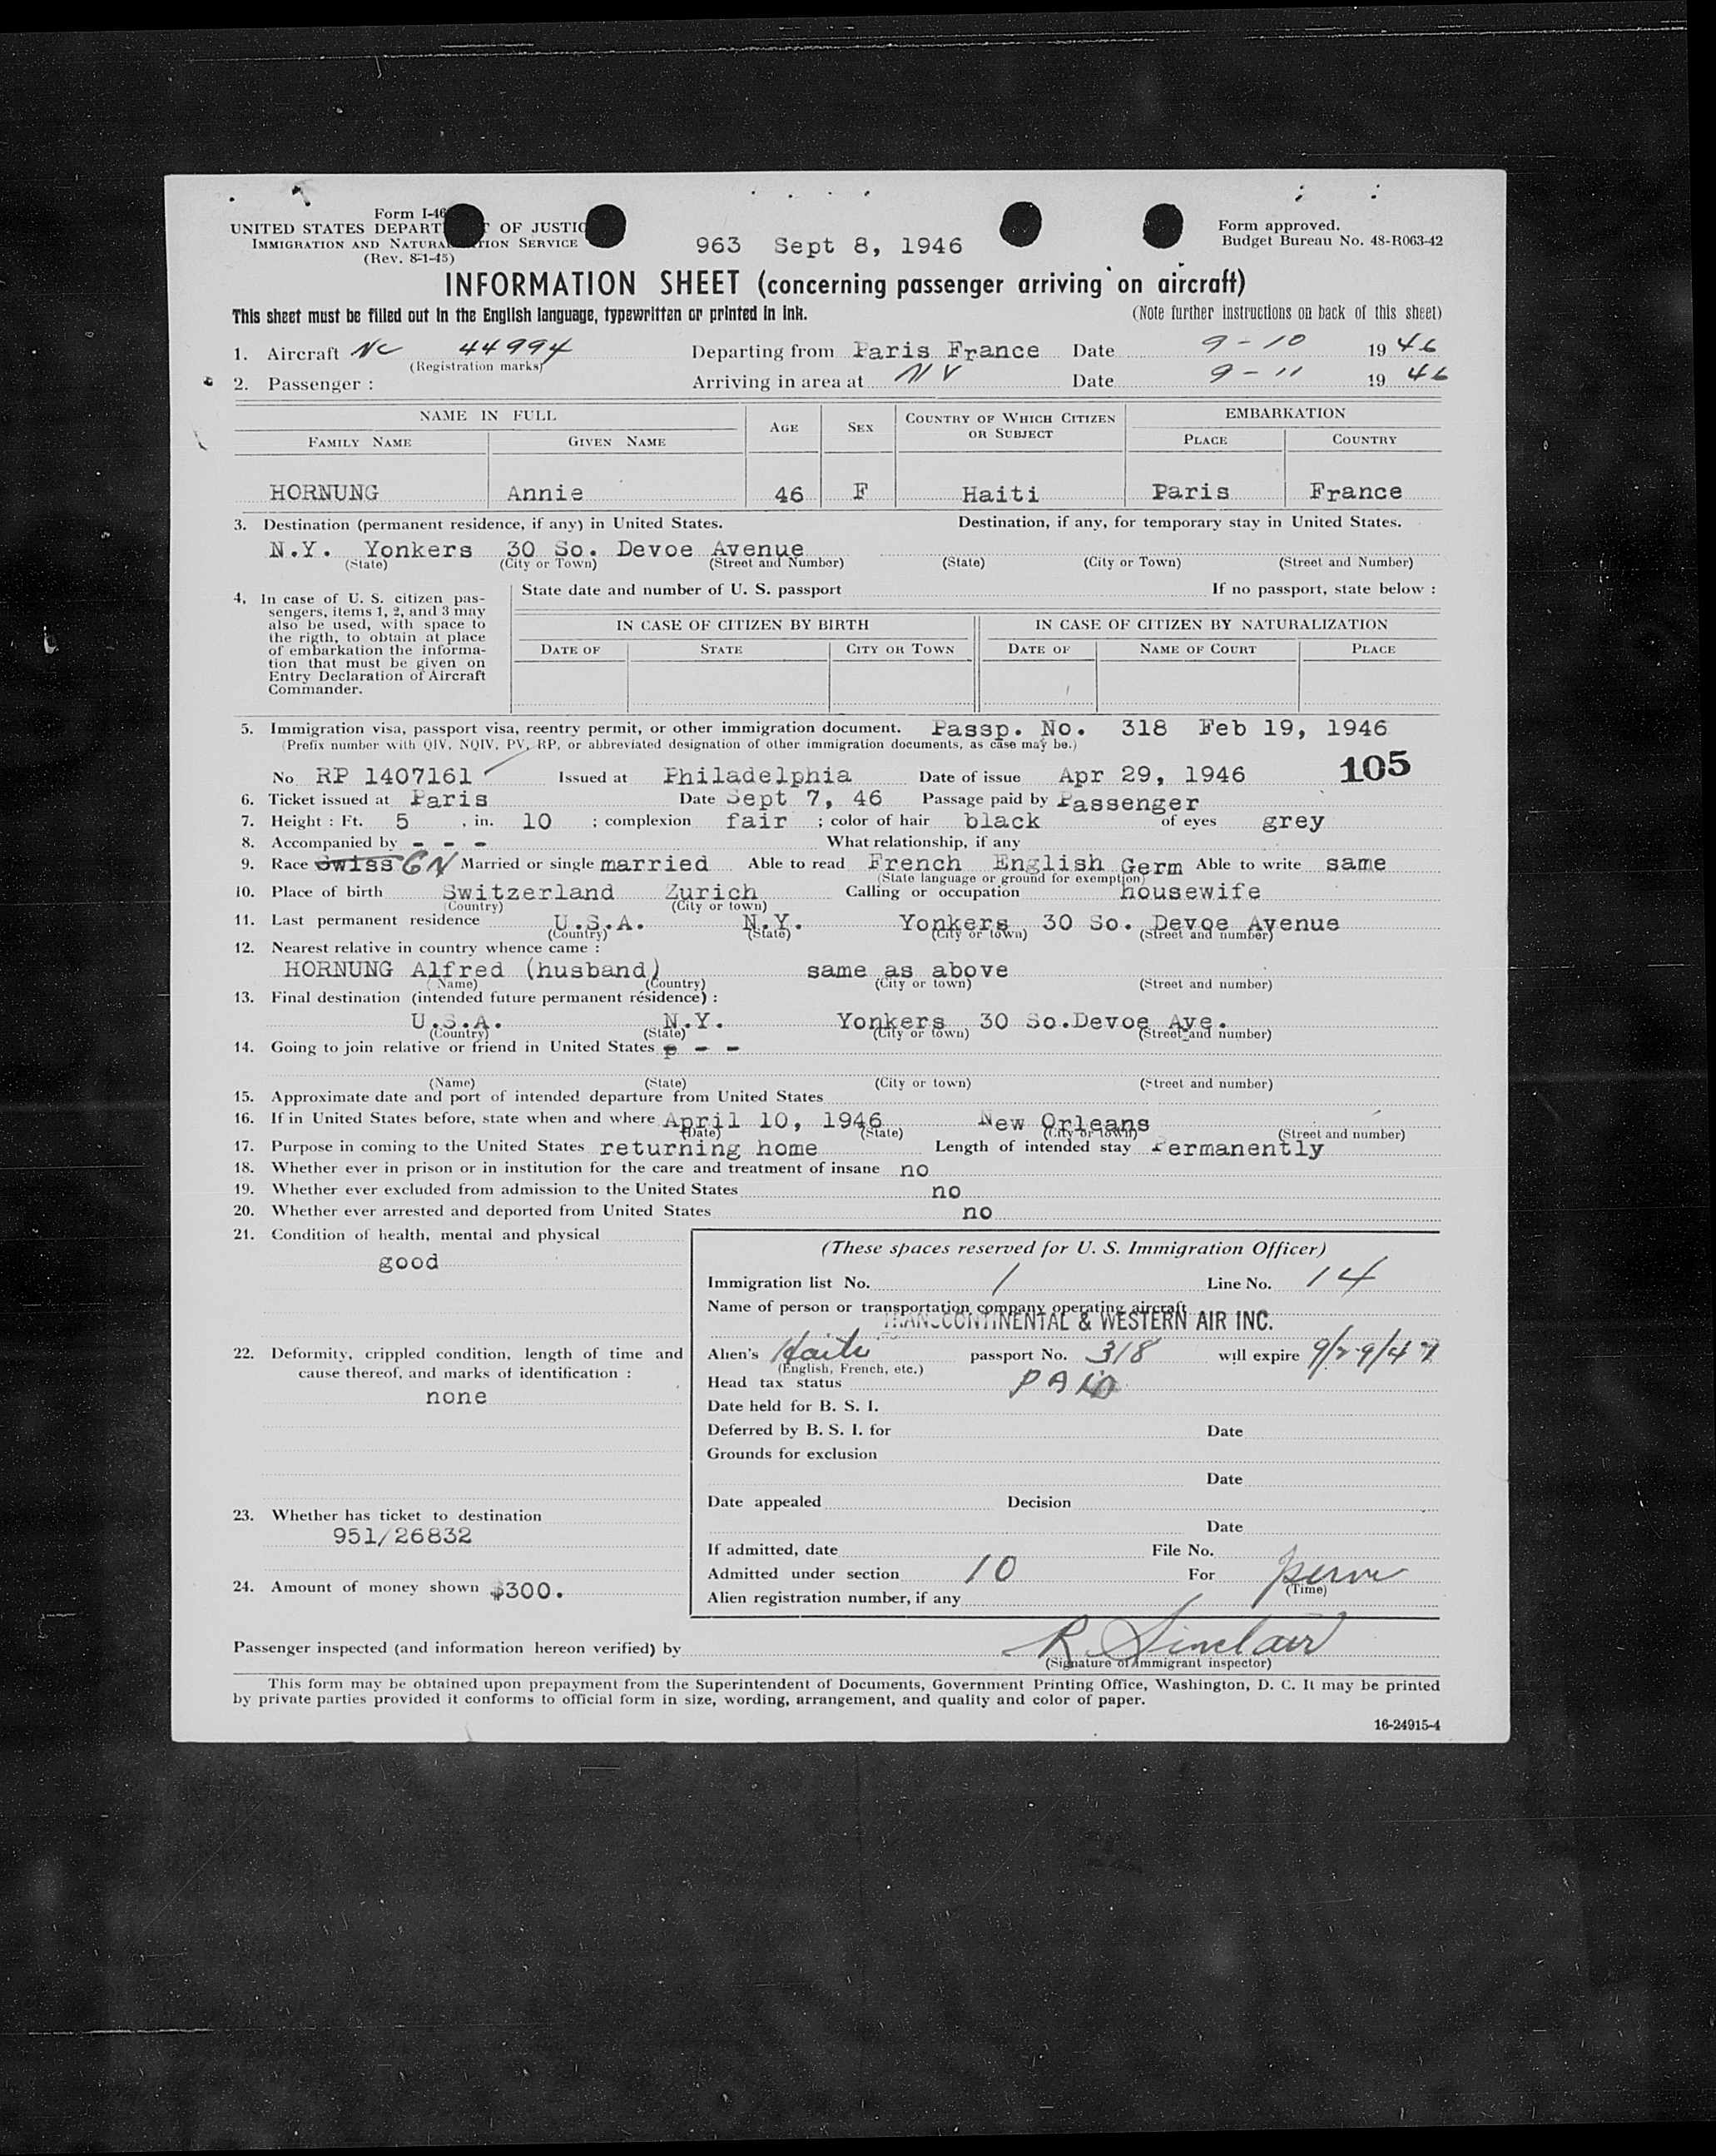 Form I-46
UNITED STATES DEPART OF JUSTIC
IMMIGRATION AND NATURA TION SERVICE
(Rev. 8-1-45)
963 Sept 8, 1946
Form approved.
Budget Bureau No. 48-R063-42
INFORMATION SHEET (concerning passenger arriving on aircraft)
This sheet must be filled out in the English language, typewritten or printed in ink. (Note further instructions on back of this sheet)
1. Aircraft NC 44994 Departing from Paris France Date 9-10 1946
(Registration marks)
2. Passenger : Arriving in area at NY Date 9-11 1946
NAME IN FULL AGE SEX COUNTRY OF WHICH CITIZEN OR SUBJECT EMBARKATION
FAMILY NAME GIVEN NAME PLACE COUNTRY
HORNUNG Annie 46 F Haiti Paris France
3. Destination (permanent residence, if any) in United States. Destination, if any, for temporary stay in United States.
N.Y. Yonkers 30 So. Devoe Avenue
(State) (City or Town) (Street and Number) (State) (City or Town) (Street and Number)
4. In case of U. S. citizen pas-
sengers, items 1, 2, and 3 may
also be used, with space to
the rigth, to obtain at place
of embarkation the informa-
tion that must be given on
Entry Declaration of Aircraft
Commander.
State date and number of U. S. passport If no passport, state below :
IN CASE OF CITIZEN BY BIRTH IN CASE OF CITIZEN BY NATURALIZATION
DATE OF STATE CITY OR TOWN DATE OF NAME OF COURT PLACE
5. Immigration visa, passport visa, reentry permit, or other immigration document. Passp. No. 318 Feb 19, 1946
(Prefix number with QIV, NQIV, PV, RP, or abbreviated designation of other immigration documents, as case may be.)
No RP 1407161 Issued at Philadelphia Date of issue Apr 29, 1946 105
6. Ticket issued at Paris Date Sept 7, 46 Passage paid by Passenger
7. Height : Ft. 5 , in. 10 ; complexion fair ; color of hair black of eyes grey
8. Accompanied by - - - What relationship, if any
9. Race Swiss GN Married or single married Able to read French English Germ Able to write same
(State language or ground for exemption)
10. Place of birth Switzerland Zurich Calling or occupation housewife
(Country) (City or town)
11. Last permanent residence U.S.A. N.Y. Yonkers 30 So. Devoe Avenue
(Country) (State) (City or town) (Street and number)
12. Nearest relative in country whence came :
HORNUNG Alfred (husband) same as above
(Name) (Country) (City or town) (Street and number)
13. Final destination (intended future permanent résidence) :
U.S.A. N.Y. Yonkers 30 So.Devoe Ave.
(Country) (State) (City or town) (Street and number)
14. Going to join relative or friend in United States - - -
(Name) (State) (City or town) (Street and number)
15. Approximate date and port of intended departure from United States
16. If in United States before, state when and where April 10, 1946 New Orleans
(Date) (State) (City or town) (Street and number)
17. Purpose in coming to the United States returning home Length of intended stay Permanently
18. Whether ever in prison or in institution for the care and treatment of insane no
19. Whether ever excluded from admission to the United States no
20. Whether ever arrested and deported from United States no
21. Condition of health, mental and physical
good
22. Deformity, crippled condition, length of time and
cause thereof, and marks of identification :
none
23. Whether has ticket to destination
951/26832
24. Amount of money shown $300.
(These spaces reserved for U. S. Immigration Officer)
Immigration list No. 1 Line No. 14
Name of person or transportation company operating aircraft
TRANSCONTINENTAL & WESTERN AIR INC.
Alien's Haiti passport No. 318 will expire 9/29/47
(English, French, etc.)
Head tax status PAID
Date held for B. S. I.
Deferred by B. S. I. for Date
Grounds for exclusion
Date
Date appealed Decision
Date
If admitted, date File No.
Admitted under section 10 For perm
(Time)
Alien registration number, if any
Passenger inspected (and information hereon verified) by R. Sinclair
(Signature of Immigrant inspector)
This form may be obtained upon prepayment from the Superintendent of Documents, Government Printing Office, Washington, D. C. It may be printed
by private parties provided it conforms to official form in size, wording, arrangement, and quality and color of paper.
16-24915-4